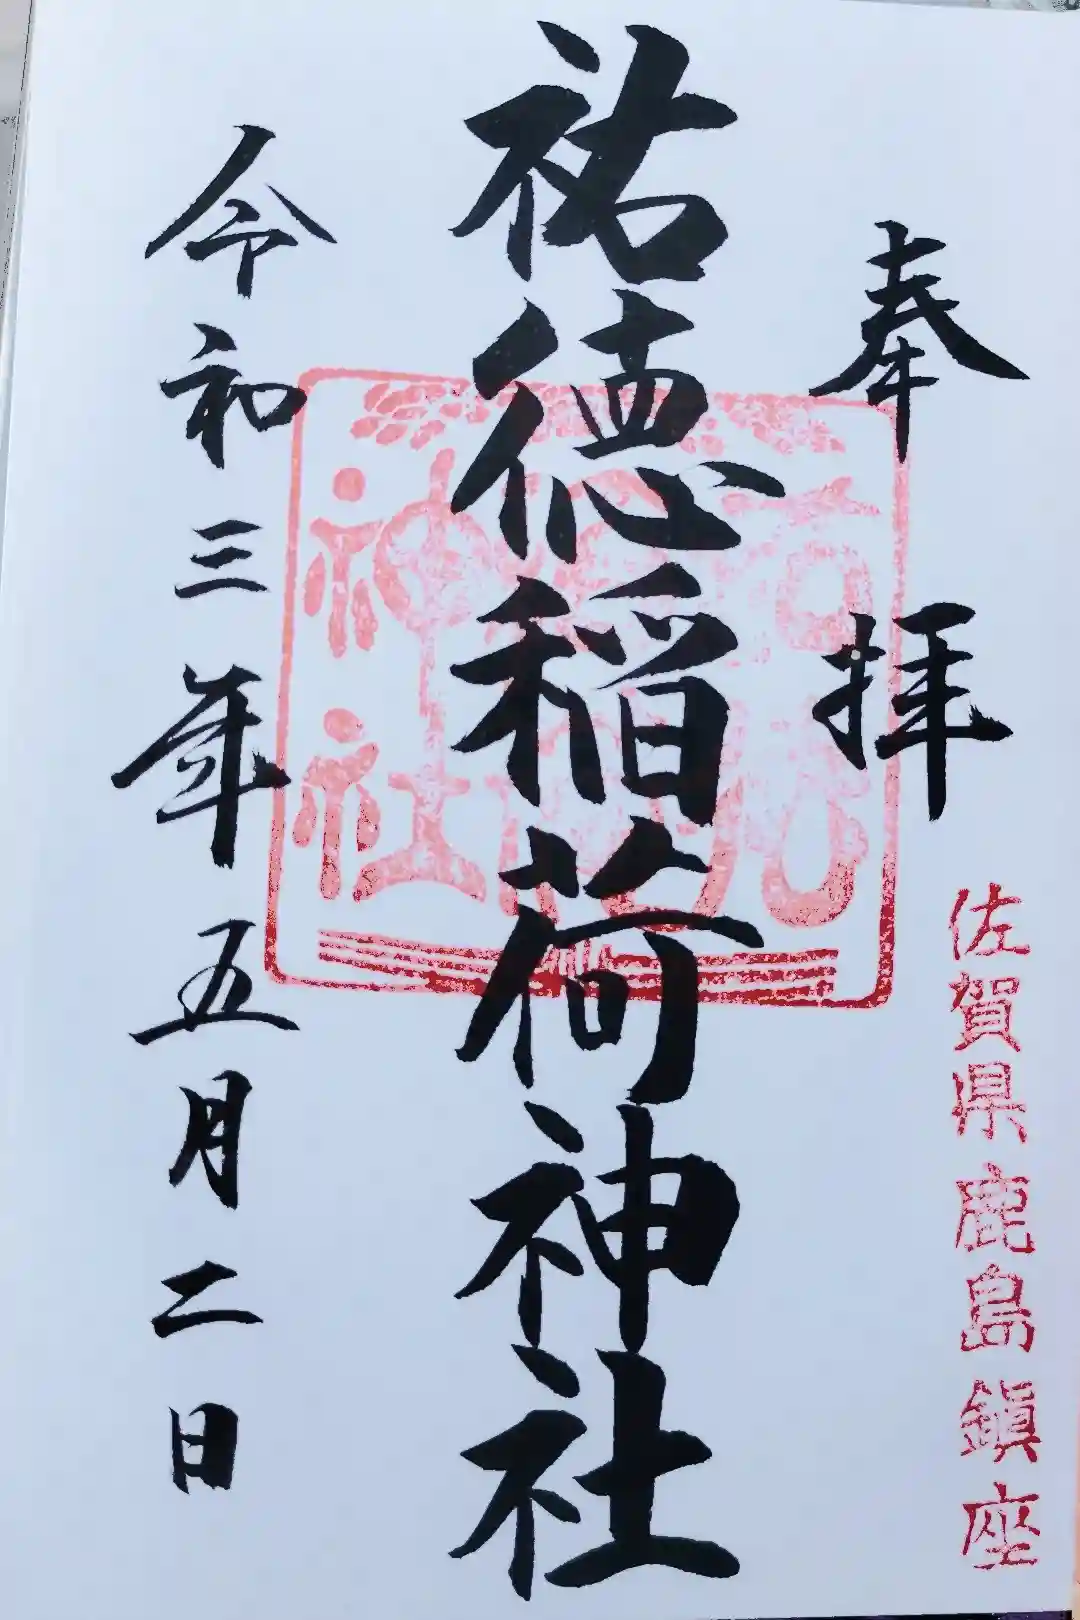 奉拝
佐賀県鹿島鎮座
祐徳稲荷神社
神社
令和三年五月二日